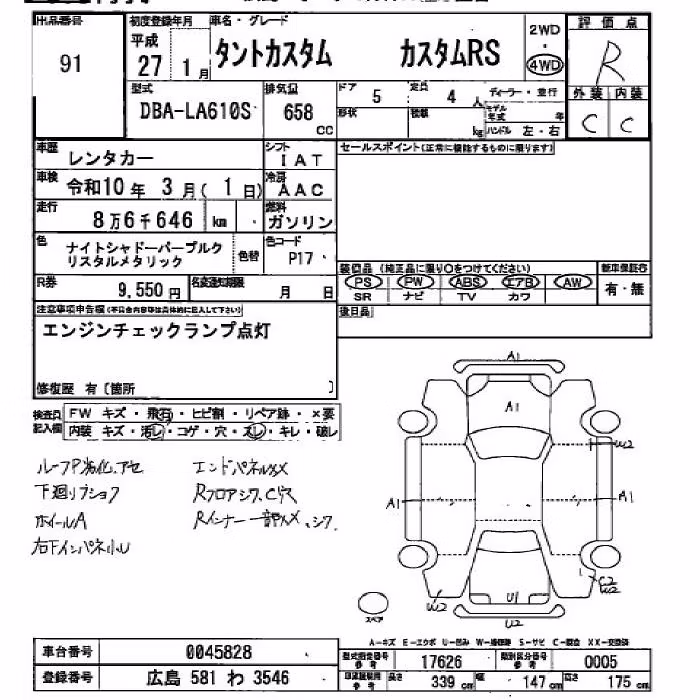 出品番号
91
初度登録年月
平成
27 1月
車名・グレード
タントカスタム カスタムRS
2WD
・
4WD
評価点
R
外装 内装
C C
型式
DBA-LA610S
排気量
658
CC
ドア 5
定員 4 人
形状
積載 kg
ディーラー・並行
モデル年式 年
ハンドル 左・右
車歴 レンタカー
シフト
IAT
セールスポイント(正常に機能するものに限ります)
車検 令和10年 3月( 1日)
冷房
AAC
走行
8万6千646 km
燃料
ガソリン
色 ナイトシャドーパープルク
リスタルメタリック
色替
色コード
P17
R券
9,550円
名変通知期限
月 日
装備品 (純正品に限り○をつけてください)
PS PW ABS エアB AW
SR ナビ TV カワ
新車保証書
有・無
後日品
注意事項申告欄(不具合内容等は具体的に記入して下さい)
エンジンチェックランプ点灯
修復歴 有〔箇所 〕
検査員
記入欄
FW キズ・飛石・ヒビ割・リペア跡・×要
内装 キズ・汚レ・コゲ・穴・スレ・キレ・破レ
ルーフP劣化,アセ
エンドパネルXX
Rフロアシワ,C穴
ホイールA
Rインナー一部XX、シワ
A1
A1
W2
A1
A1
U1
W2
U2
C2
W2
スペア
A-キズ E-エクボ U-凹み W-補修跡 S-サビ C-腐食 XX-交換済
車台番号 0045828
登録番号 広島 581 わ 3546
型式指定番号
参考
17626
類別区分番号
参考
0005
車庫証明用
参考
長さ 339 cm 幅 147 cm 高さ 175 cm